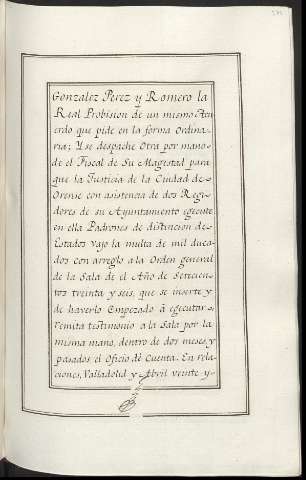 Gonzalez Perez y Romero la
Real Probision de un mismo Acu
erdo que pide en la forma Ordina
ria; Y se despache Otra por mano
de el Fiscal de Su Magestad para
que la Justicia de la Ciudad de
Orense con asistencia de dos Regi
dores de su Ayuntamiento egecute
en ella Padrones de distincion de
Estados vajo la multa de mil duca
dos con arreglo a la Orden general
de la Sala de el Año de Setecien
tos treinta y seis, que se inserte y
de haverlo Empezado á egecutar
remita testimonio a la Sala por la
misma mano, dentro de dos meses, y
pasados el Oficio dé Cuenta. En rela
ciones, Valladolid y Abril veinte y